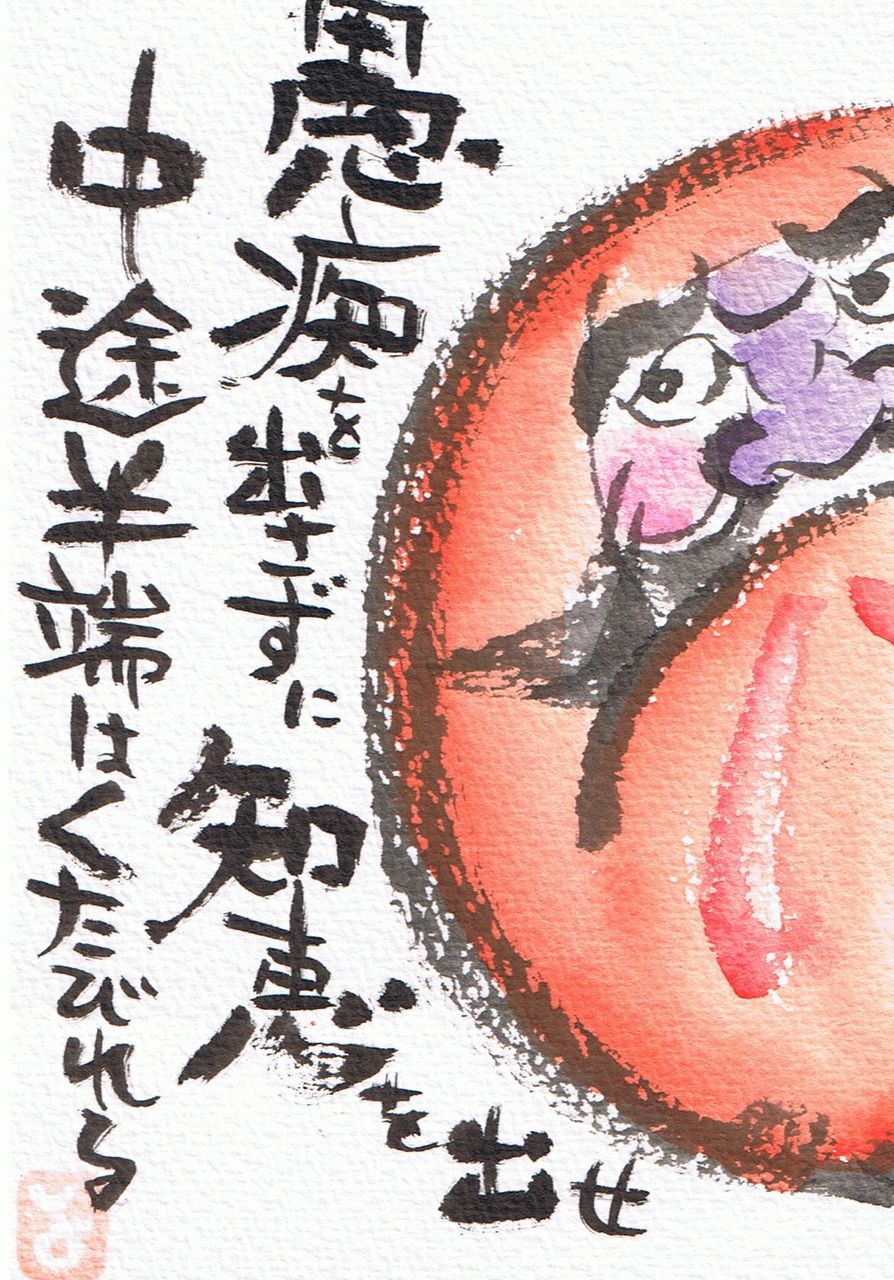 愚痴を出さずに知恵を出せ
中途半端はくたびれる
よ